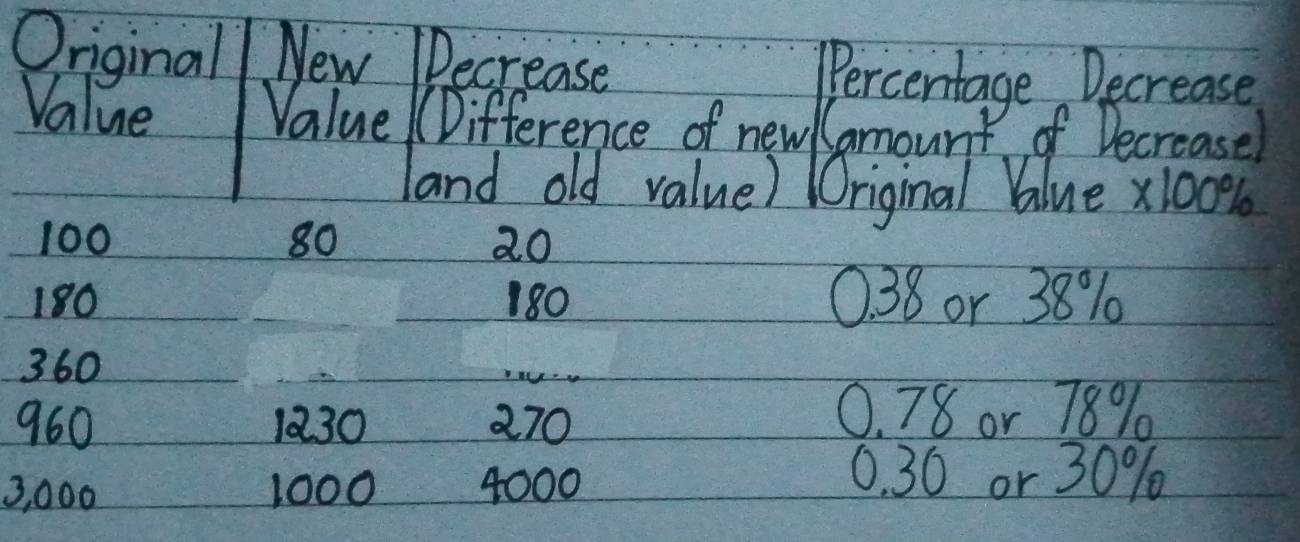 Original New Decrease Percentage Decrease
Value Value (Difference of new (amount of Decrease)
and old value) Original Value x100%
100 80 20
180 180 0.38 or 38%
360
960 1230 270 0.78 or 78%
3,000 1000 4000 0.30 or 30%